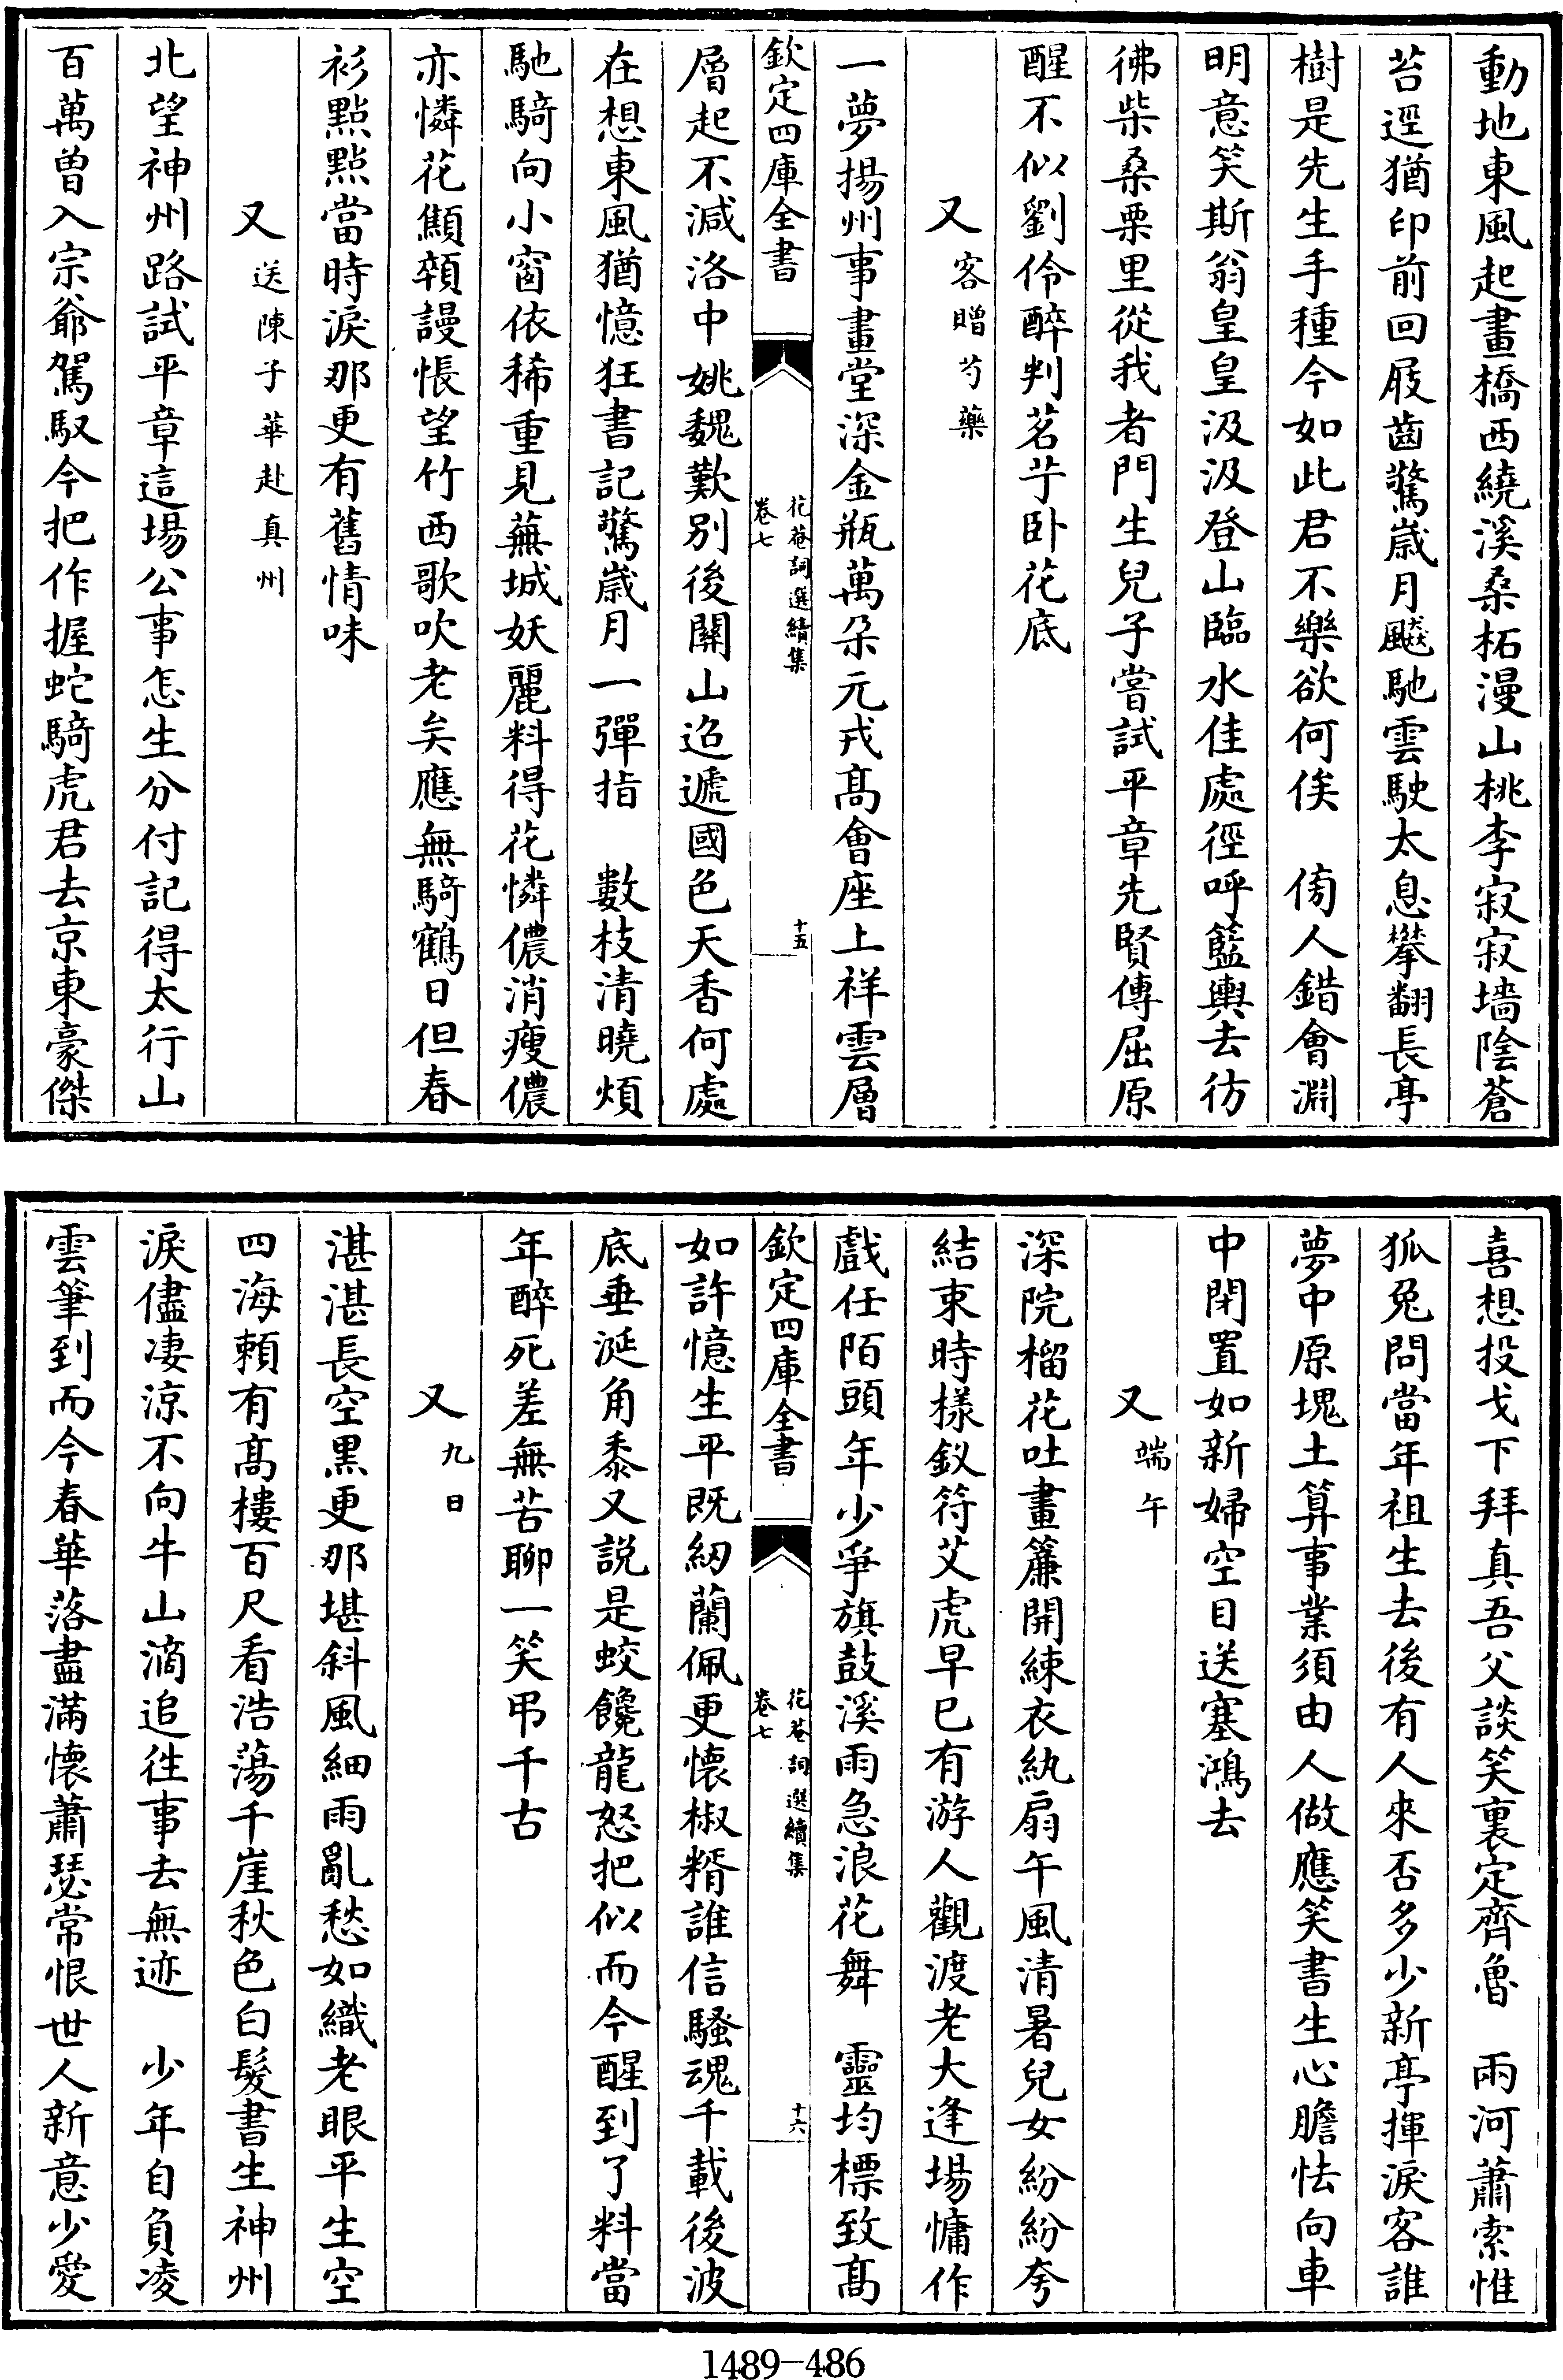 動地東風起畫橋西繞溪桑柘漫山桃李寂寂墻陰蒼
苔逕猶印前回屐齒驚嵗月飈馳雲駛太息攀翻長亭
樹是先生手種今如此君不樂欲何俟　傍人錯會淵
明意笑斯翁皇皇汲汲登山臨水佳處徑呼籃輿去彷
彿柴桑栗里從我者門生兒子嘗試平章先賢傳屈原
醒不似劉伶醉判茗艼卧花底
又客贈芍藥
一夢揚州事畫堂深金瓶萬朵元戎髙會座上祥雲層
欽定四庫全書
花菴詞選續集
卷七
十五
層起不減洛中姚魏歎别後闗山迢遞國色天香何處
在想東風猶憶狂書記驚嵗月一彈指　數枝清曉煩
馳騎向小窗依稀重見蕪城妖麗料得花憐儂消瘦儂
亦憐花顦顇謾悵望竹西歌吹老矣應無騎鶴日但春
衫㸃㸃當時淚那更有舊情味
又送陳子華赴真州
北望神州路試平章這場公事怎生分付記得太行山
百萬曾入宗爺駕馭今把作握蛇騎虎君去京東豪傑
喜想投戈下拜真吾父談笑裏定齊魯　兩河蕭索惟
狐兔問當年祖生去後有人來否多少新亭揮淚客誰
夢中原塊土算事業須由人做應笑書生心膽怯向車
中閉置如新婦空目送塞鴻去
又端午
深院榴花吐畫簾開綀衣紈扇午風清暑兒女紛紛夸
結束時様釵符艾虎早已有游人觀渡老大逢場慵作
戲任陌頭年少爭旗鼓溪雨急浪花舞　靈均標致髙
欽定四庫全書
花菴詞選續集
卷七
十六
如許憶生平既紉蘭佩更懷椒糈誰信騷魂千載後波
底垂涎角黍又説是蛟饞龍怒把似而今醒到了料當
年醉死差無苦聊一笑弔千古
又九日
湛湛長空黒更那堪斜風細雨亂愁如織老眼平生空
四海頼有髙樓百尺看浩蕩千崖秋色白髮書生神州
淚儘凄涼不向牛山滴追徃事去無迹　少年自負凌
雲筆到而今春華落盡滿懐蕭瑟常恨世人新意少愛
1489-486